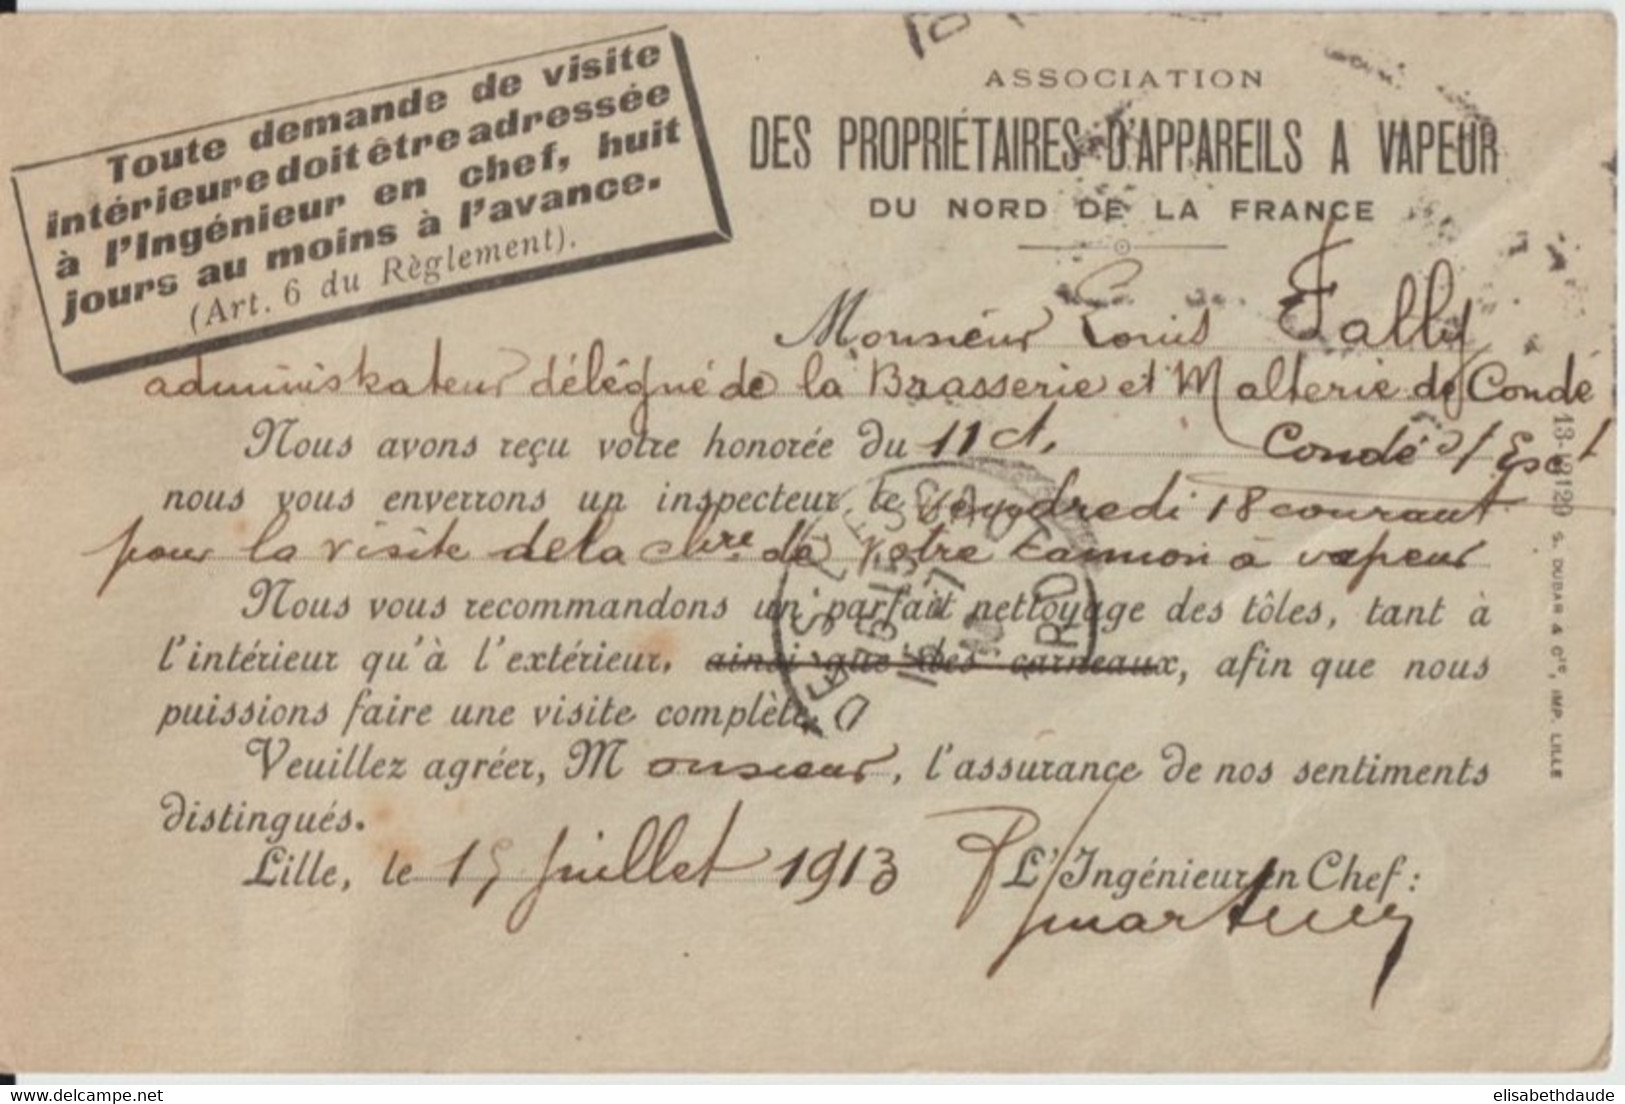 Toute demande de visite
intérieure doit être adressée
à l'Ingénieur en chef, huit
jours au moins à l'avance.
(Art. 6 du Règlement).
ASSOCIATION
DES PROPRIÉTAIRES D'APPAREILS A VAPEUR
DU NORD DE LA FRANCE
Monsieur Louis Fally
administrateur délégué de la Brasserie et Malterie de Condé
Nous avons reçu votre honorée du 11 ct. Condé s/ Esct
nous vous enverrons un inspecteur, le vendredi 18 courant
pour la visite de la chre de votre camion à vapeur
Nous vous recommandons un parfait nettoyage des tôles, tant à
l'intérieur qu'à l'extérieur, ainsi que des carneaux, afin que nous
puissions faire une visite complète.
Veuillez agréer, Monsieur, l'assurance de nos sentiments
distingués.
Lille, le 15 Juillet 1913
L'Ingénieur en Chef:
S. DUBAR & Cie, IMP. LILLE
delcampe.net
elisabethdaude